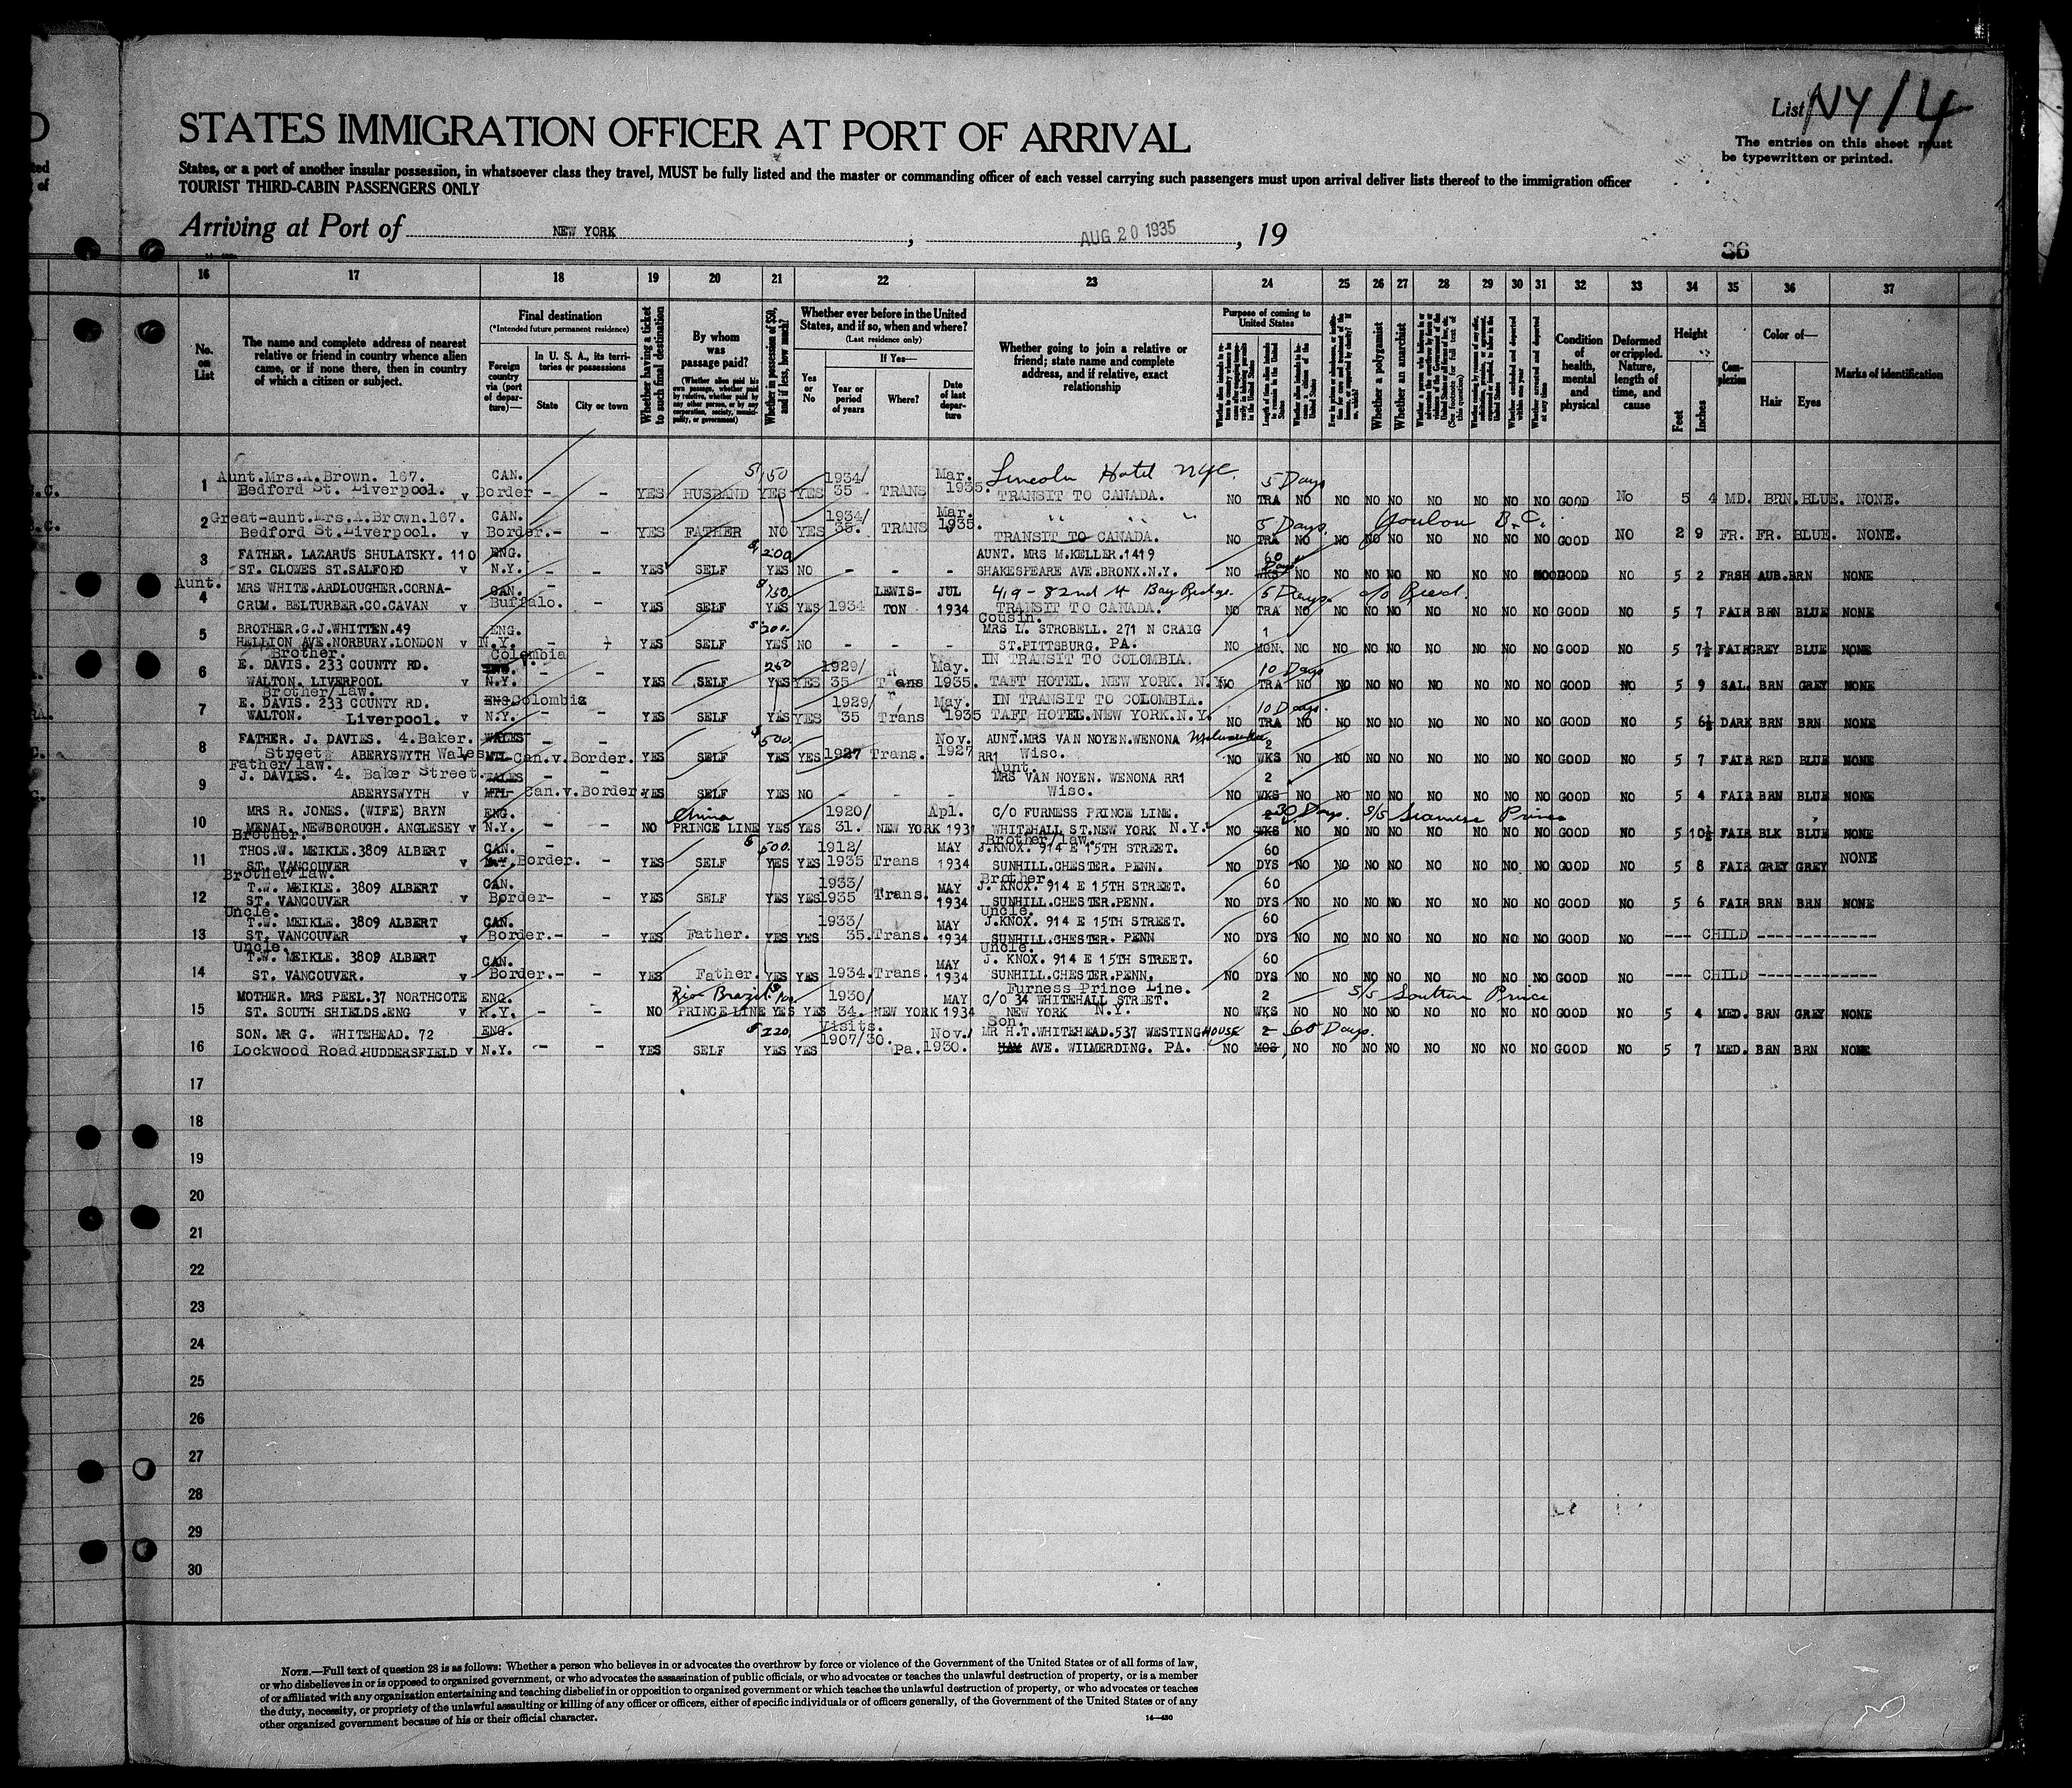 List NY/4
STATES IMMIGRATION OFFICER AT PORT OF ARRIVAL
The entries on this sheet must
be typewritten or printed.
States, or a port of another insular possession, in whatsoever class they travel, MUST be fully listed and the master or commanding officer of each vessel carrying such passengers must upon arrival deliver lists thereof to the immigration officer
TOURIST THIRD-CABIN PASSENGERS ONLY
Arriving at Port of NEW YORK, AUG 20 1935, 19
36
16 17 18 19 20 21 22 23 24 25 26 27 28 29 30 31 32 33 34 35 36 37
No. on List
The name and complete address of nearest
relative or friend in country whence alien
came, or if none there, then in country
of which a citizen or subject.
Final destination
(*Intended future permanent residence)
Foreign country via (port of departure)—
In U. S. A., its territories or possessions
State
City or town
Whether having a ticket to such final destination
By whom was passage paid?
Whether in possession of $50, and if less, how much?
Whether ever before in the United
States, and if so, when and where?
(Last residence only)
If Yes—
Yes or No
Year or period of years
Where?
Date of last departure
Whether going to join a relative or
friend; state name and complete
address, and if relative, exact
relationship
Purpose of coming to United States
Whether a polygamist
Whether an anarchist
Condition of health, mental and physical
Deformed or crippled. Nature, length of time, and cause
Height
Feet
Inches
Complexion
Color of—
Hair
Eyes
Marks of identification
Aunt.Mrs.A.Brown. 167. CAN. 50 1934/ Mar. Lincoln Hotel NYC. 5 Days
1 Bedford St. Liverpool. v Border - - YES HUSBAND YES YES 35 TRANS 1935. TRANSIT TO CANADA. NO TRA NO NO NO NO NO NO NO NO GOOD No 5 4 MD. BRN. BLUE. NONE.
2 Great-aunt.Mrs.A.Brown.167. CAN. 1934/ Mar. 5 Days.
Bedford St.Liverpool. v Border.- - YES FATHER NO YES 35. TRANS 1935. TRANSIT TO CANADA. NO TRA NO NO NO NO NO NO NO NO GOOD NO 2 9 FR. FR. BLUE. NONE.
3 FATHER. LAZARUS SHULATSKY. 110 ENG. $200 AUNT. MRS M.KELLER.1419 60 Days
ST. CLOWES ST.SALFORD v N.Y. - - YES SELF YES NO - - - SHAKESPEARE AVE.BRONX.N.Y. NO WKS NO NO NO NO NO NO NO NO GOOD NO 5 2 FRSH AUB. BRN NONE
Aunt. MRS WHITE.ARDLOUGHER.CORNA- CAN. $150 LEWIS- JUL 419 - 82nd St Bay Ridge. 5 Days.
4 CRUM. BELTURBER.CO.CAVAN v Buffalo. - YES SELF YES YES 1934 TON 1934 TRANSIT TO CANADA. NO TRA NO NO NO NO NO NO NO NO GOOD NO 5 7 FAIR BRN BLUE NONE
5 BROTHER.G.J.WHITTEN.49 ENG. $200. Cousin. MRS L. STROBELL. 271 N CRAIG 1
HELLION AVE.NORBURY.LONDON v N.Y. - YES SELF YES NO - - - ST.PITTSBURG. PA. NO MON. NO NO NO NO NO NO NO NO GOOD NO 5 7½ FAIR GREY BLUE NONE
Brother. Colombia
6 E. DAVIS. 233 COUNTY RD. ENG. 260 1929/ May. IN TRANSIT TO COLOMBIA. 10 Days
WALTON. LIVERPOOL v N.Y. - - YES SELF YES YES 35 Trans 1935. TAFT HOTEL. NEW YORK. N.Y. NO TRA NO NO NO NO NO NO NO NO GOOD NO 5 9 SAL. BRN GREY NONE
Brother/law.
7 E. DAVIS. 233 COUNTY RD. ENG Colombia 1929/ May. IN TRANSIT TO COLOMBIA. 10 Days.
WALTON. Liverpool. v N.Y. - - YES SELF YES YES 35 Trans 1935 TAFT HOTEL.NEW YORK.N.Y. NO TRA NO NO NO NO NO NO NO NO GOOD NO 5 6½ DARK BRN BRN NONE
8 FATHER. J. DAVIES. 4.Baker. WALES - - $500. Nov. AUNT.MRS VAN NOYEN.WENONA Milwaukee 2
Street. ABERYSWYTH Wales MTL- Can.v.Border. YES SELF YES YES 1927 Trans. 1927 RR1 Wisc. NO WKS NO NO NO NO NO NO NO NO GOOD NO 5 7 FAIR RED BLUE NONE
Father/law. Aunt
9 J. DAVIES. 4. Baker Street. WALES - - MRS VAN NOYEN. WENONA RR1 2
ABERYSWYTH v MTL- Can.v.Border. YES SELF YES NO - - - Wisc. NO WKS NO NO NO NO NO NO NO NO GOOD NO 5 4 FAIR BRN BLUE NONE
10 MRS R. JONES. (WIFE) BRYN ENG. China 1920/ Apl. C/O FURNESS PRINCE LINE. 30 Days. S/S Siamese Prince
MENAI. NEWBOROUGH. ANGLESEY v N.Y. NO PRINCE LINE YES YES 31. NEW YORK 1931 WHITEHALL ST.NEW YORK N.Y. NO WKS NO NO NO NO NO NO NO NO GOOD NO 5 10½ FAIR BLK BLUE NONE
Brother. Brother/law.
11 THOS.W. MEIKLE.3809 ALBERT CAN. $500. 1912/ MAY J.KNOX. 914 E 15TH STREET. 60
ST. VANCOUVER v N.Y. Border. - YES SELF YES YES 1935 Trans 1934 SUNHILL.CHESTER. PENN. NO DYS NO NO NO NO NO NO NO NO GOOD NO 5 8 FAIR GREY GREY NONE
Brother/law. Brother.
12 T.W. MEIKLE. 3809 ALBERT CAN. 1933/ MAY J. KNOX. 914 E 15TH STREET. 60
ST. VANCOUVER v Border- - YES SELF YES YES 1935 Trans. 1934 SUNHILL.CHESTER.PENN. NO DYS NO NO NO NO NO NO NO NO GOOD NO 5 6 FAIR BRN BRN NONE
Uncle. Uncle.
13 T.W. MEIKLE. 3809 ALBERT CAN. 1933/ MAY J.KNOX. 914 E 15TH STREET. 60
ST. VANCOUVER v Border.- - YES Father. YES YES 35. Trans. 1934 SUNHILL.CHESTER. PENN NO DYS NO NO NO NO NO NO NO NO GOOD NO --- CHILD -------------
Uncle. Uncle.
14 T.W. MEIKLE. 3809 ALBERT CAN. MAY J. KNOX. 914 E 15TH STREET. 60
ST. VANCOUVER. v Border.- - YES Father. YES YES 1934. Trans. 1934 SUNHILL.CHESTER.PENN. NO DYS NO NO NO NO NO NO NO NO GOOD NO --- CHILD -------------
15 MOTHER. MRS PEEL.37 NORTHCOTE ENG. Rio Brazil 1930/ MAY Furness Prince Line. C/O 34 WHITEHALL STREET. 2 S/S Southern Prince
ST. SOUTH SHIELDS.ENG v N.Y. - - NO PRINCE LINE YES YES 34. NEW YORK 1934 NEW YORK N.Y. NO WKS NO NO NO NO NO NO NO NO GOOD NO 5 4 MED. BRN GREY NONE
16 SON. MR G. WHITEHEAD. 72 ENG. $220 Visits. 1907/30. Nov. Son. MR H.T.WHITEHEAD.537 WESTINGHOUSE 2 60 Days.
Lockwood Road.HUDDERSFIELD v N.Y. - - YES SELF YES YES Pa. 1930. AVE. WILMERDING. PA. NO MOS NO NO NO NO NO NO NO NO GOOD NO 5 7 MED. BRN BRN NONE
17
18
19
20
21
22
23
24
25
26
27
28
29
30
NOTE.—Full text of question 28 is as follows: Whether a person who believes in or advocates the overthrow by force or violence of the Government of the United States or of all forms of law,
or who disbelieves in or is opposed to organized government, or who advocates the assassination of public officials, or who advocates or teaches the unlawful destruction of property, or is a member
of or affiliated with any organization entertaining and teaching disbelief in or opposition to organized government or which teaches the unlawful destruction of property, or who advocates or teaches
the duty, necessity, or propriety of the unlawful assaulting or killing of any officer or officers, either of specific individuals or of officers generally, of the Government of the United States or of any
other organized government because of his or their official character.
14—430